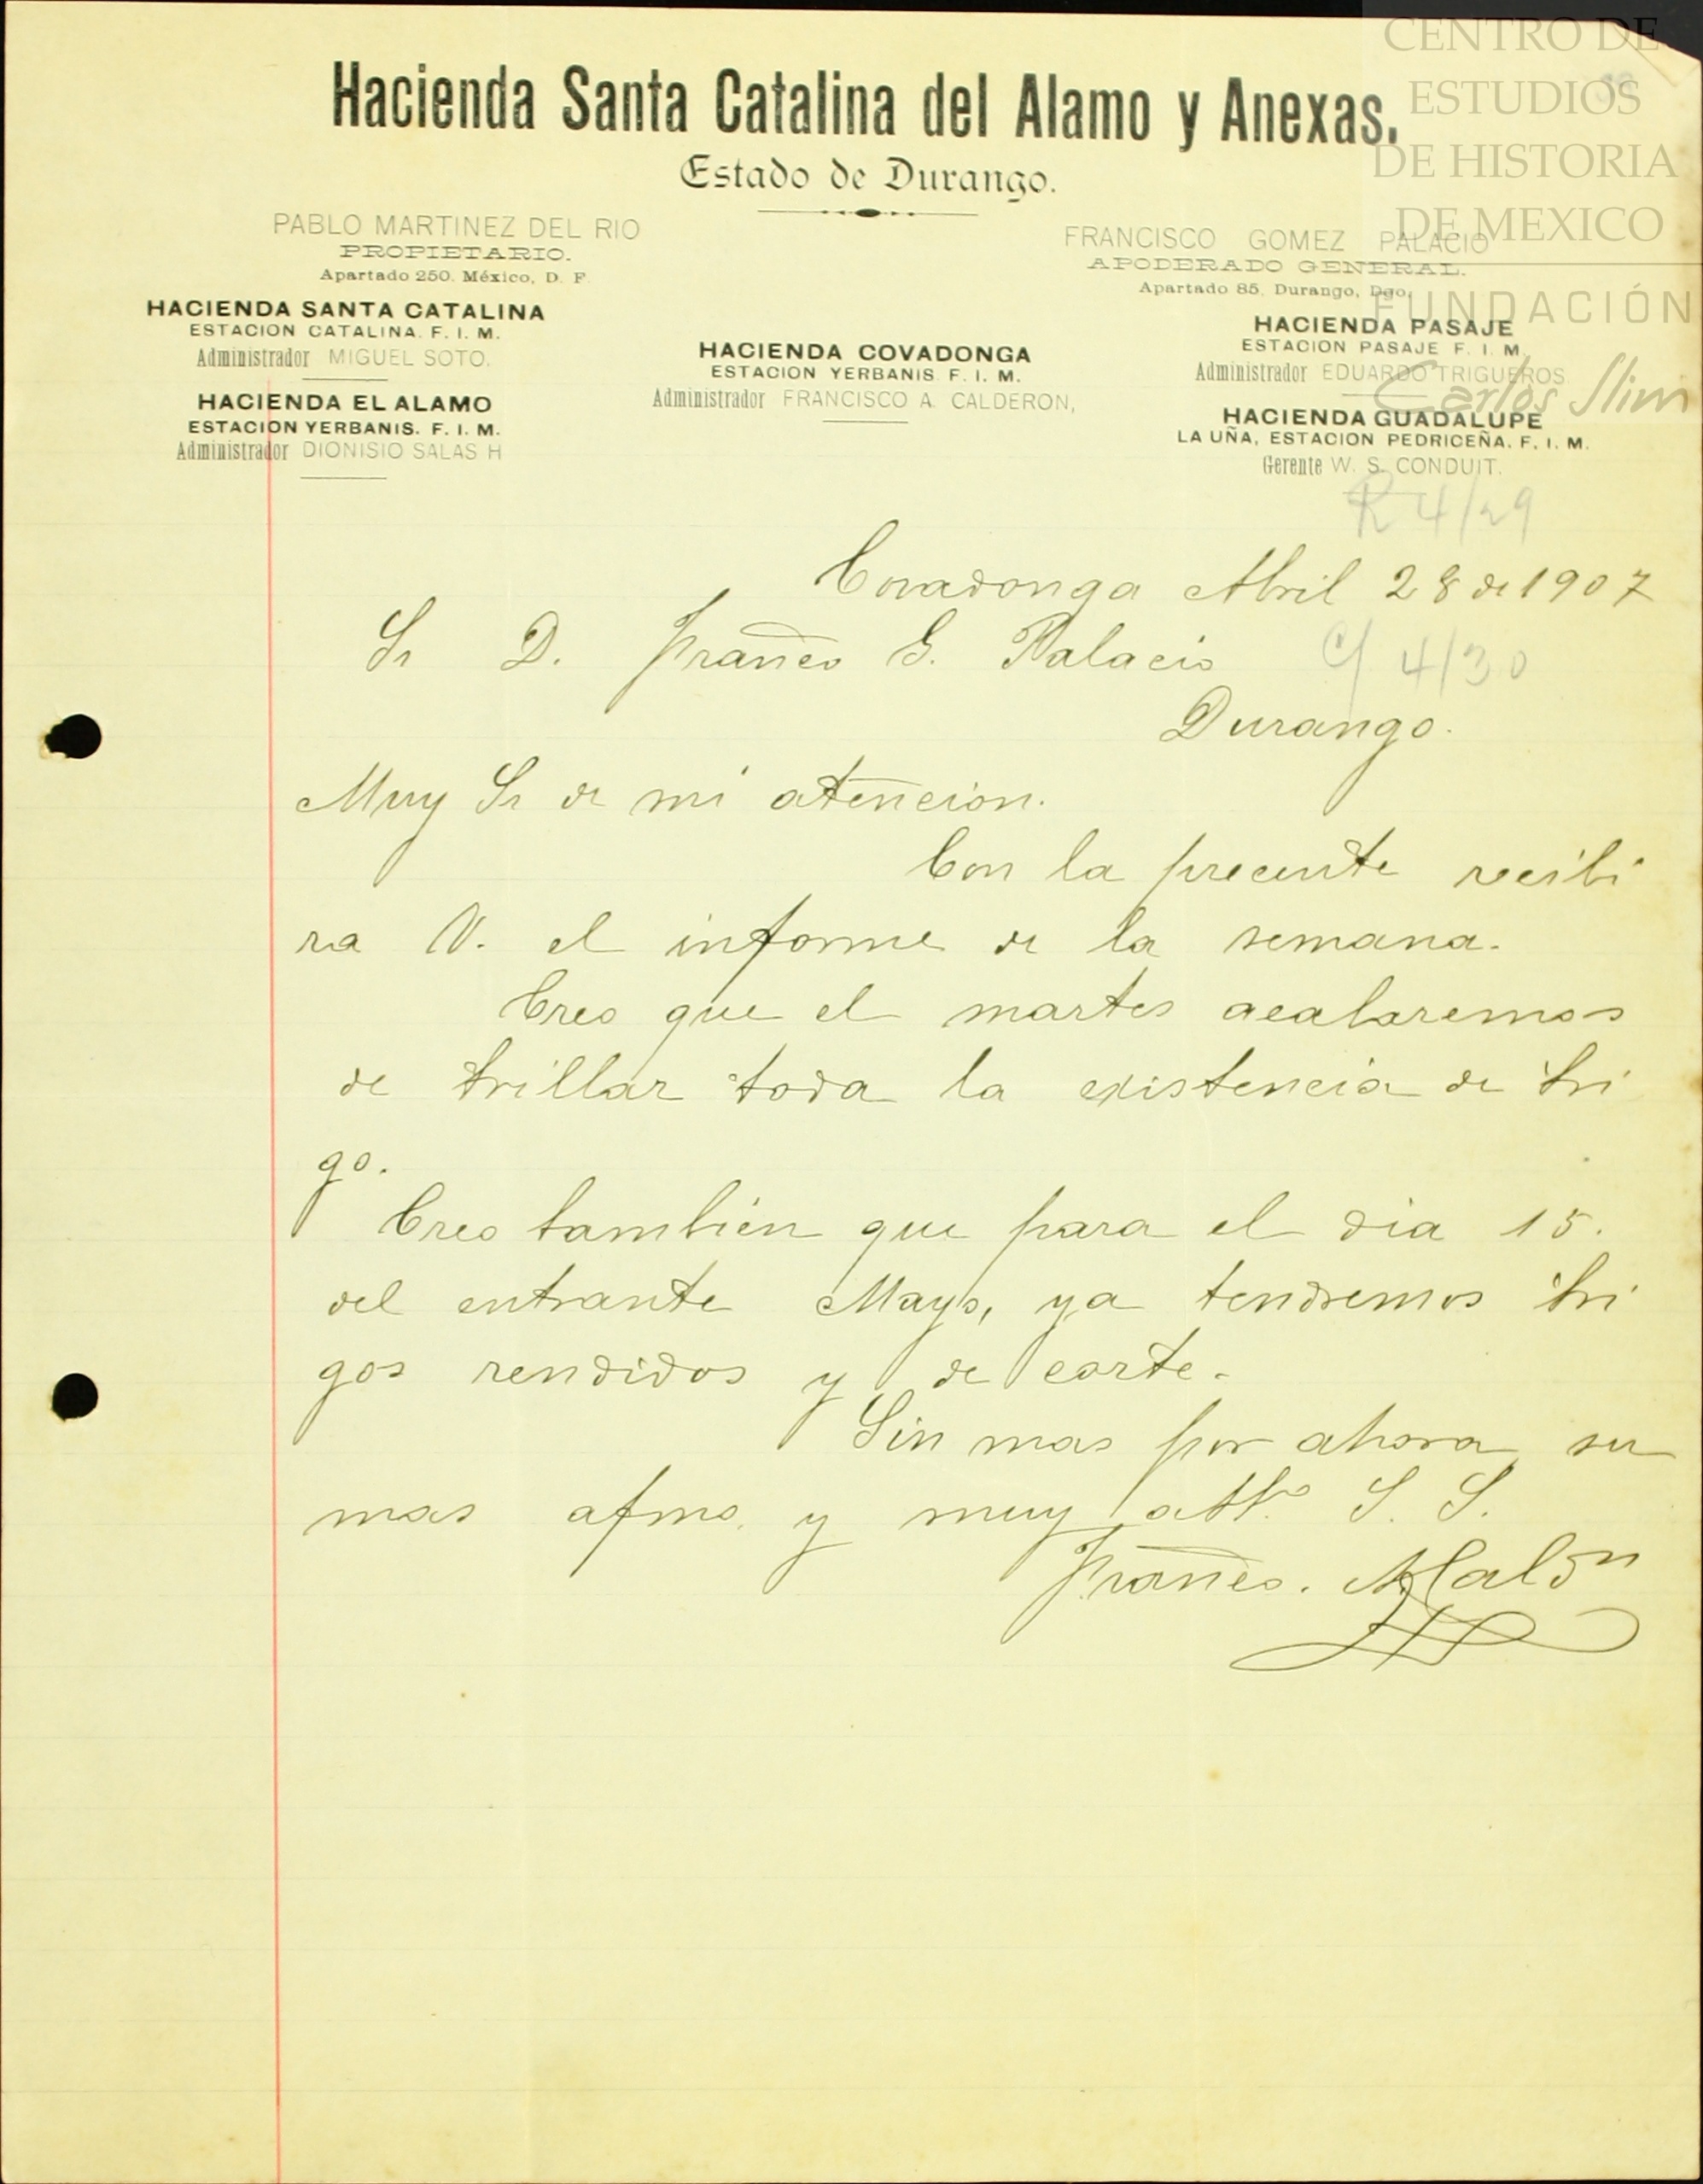 CENTRO DE
ESTUDIOS
DE HISTORIA
DE MEXICO
FUNDACIÓN
Carlos Slim
Hacienda Santa Catalina del Alamo y Anexas.
Estado de Durango.
PABLO MARTINEZ DEL RIO
PROPIETARIO.
Apartado 250. México, D. F.
FRANCISCO GOMEZ PALACIO
APODERADO GENERAL.
Apartado 85, Durango, Dgo.
HACIENDA SANTA CATALINA
ESTACION CATALINA. F. I. M.
Administrador MIGUEL SOTO.
HACIENDA EL ALAMO
ESTACION YERBANIS. F. I. M.
Administrador DIONISIO SALAS H
HACIENDA COVADONGA
ESTACION YERBANIS. F. I. M.
Administrador FRANCISCO A. CALDERON,
HACIENDA PASAJE
ESTACION PASAJE F. I. M.
Administrador EDUARDO TRIGUEROS
HACIENDA GUADALUPE
LA UÑA, ESTACION PEDRICEÑA. F. I. M.
Gerente W. S. CONDUIT.
R 4/29
Covadonga Abril 28 de 1907
Sr D. Franco G. Palacio
C/ 4/30
Durango.
Muy Sr de mi atencion.
Con la precente recibi
ra V. el informe de la semana.
Creo que el martes acabaremos
de trillar toda la existencia de tri
go.
Creo tambien que para el dia 15.
del entrante Mayo, ya tendremos tri
gos rendidos y de corte.
Sin mas por ahora su
mas afmo. y muy atto S. S.
Franco. A Calon